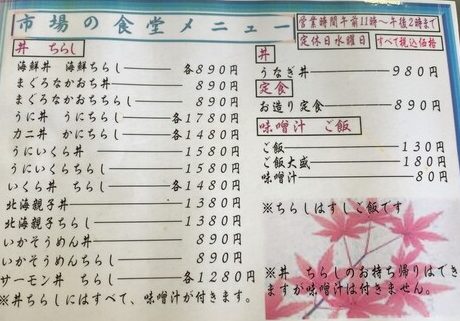 市場の食堂メニュー
営業時間午前11時～午後2時まで
定休日水曜日 すべて税込価格
丼 ちらし
海鮮丼 海鮮ちらし――各890円
まぐろなかおち丼――890円
まぐろなかおちちらし――890円
うに丼 うにちらし――各1780円
カニ丼 かにちらし――各1480円
うにいくら丼――1580円
うにいくらちらし――1580円
いくら丼 ちらし――各1480円
北海親子丼――1380円
北海親子ちらし――1380円
いかそうめん丼――890円
いかそうめんちらし――890円
サーモン丼 ちらし――各1280円
※丼ちらしにはすべて、味噌汁が付きます。
丼
うなぎ丼――980円
定食
お造り定食――890円
味噌汁 ご飯
ご飯――130円
ご飯大盛――180円
味噌汁――80円
※ちらしはすしご飯です
※丼 ちらしのお持ち帰りはでき
ますが味噌汁は付きません。